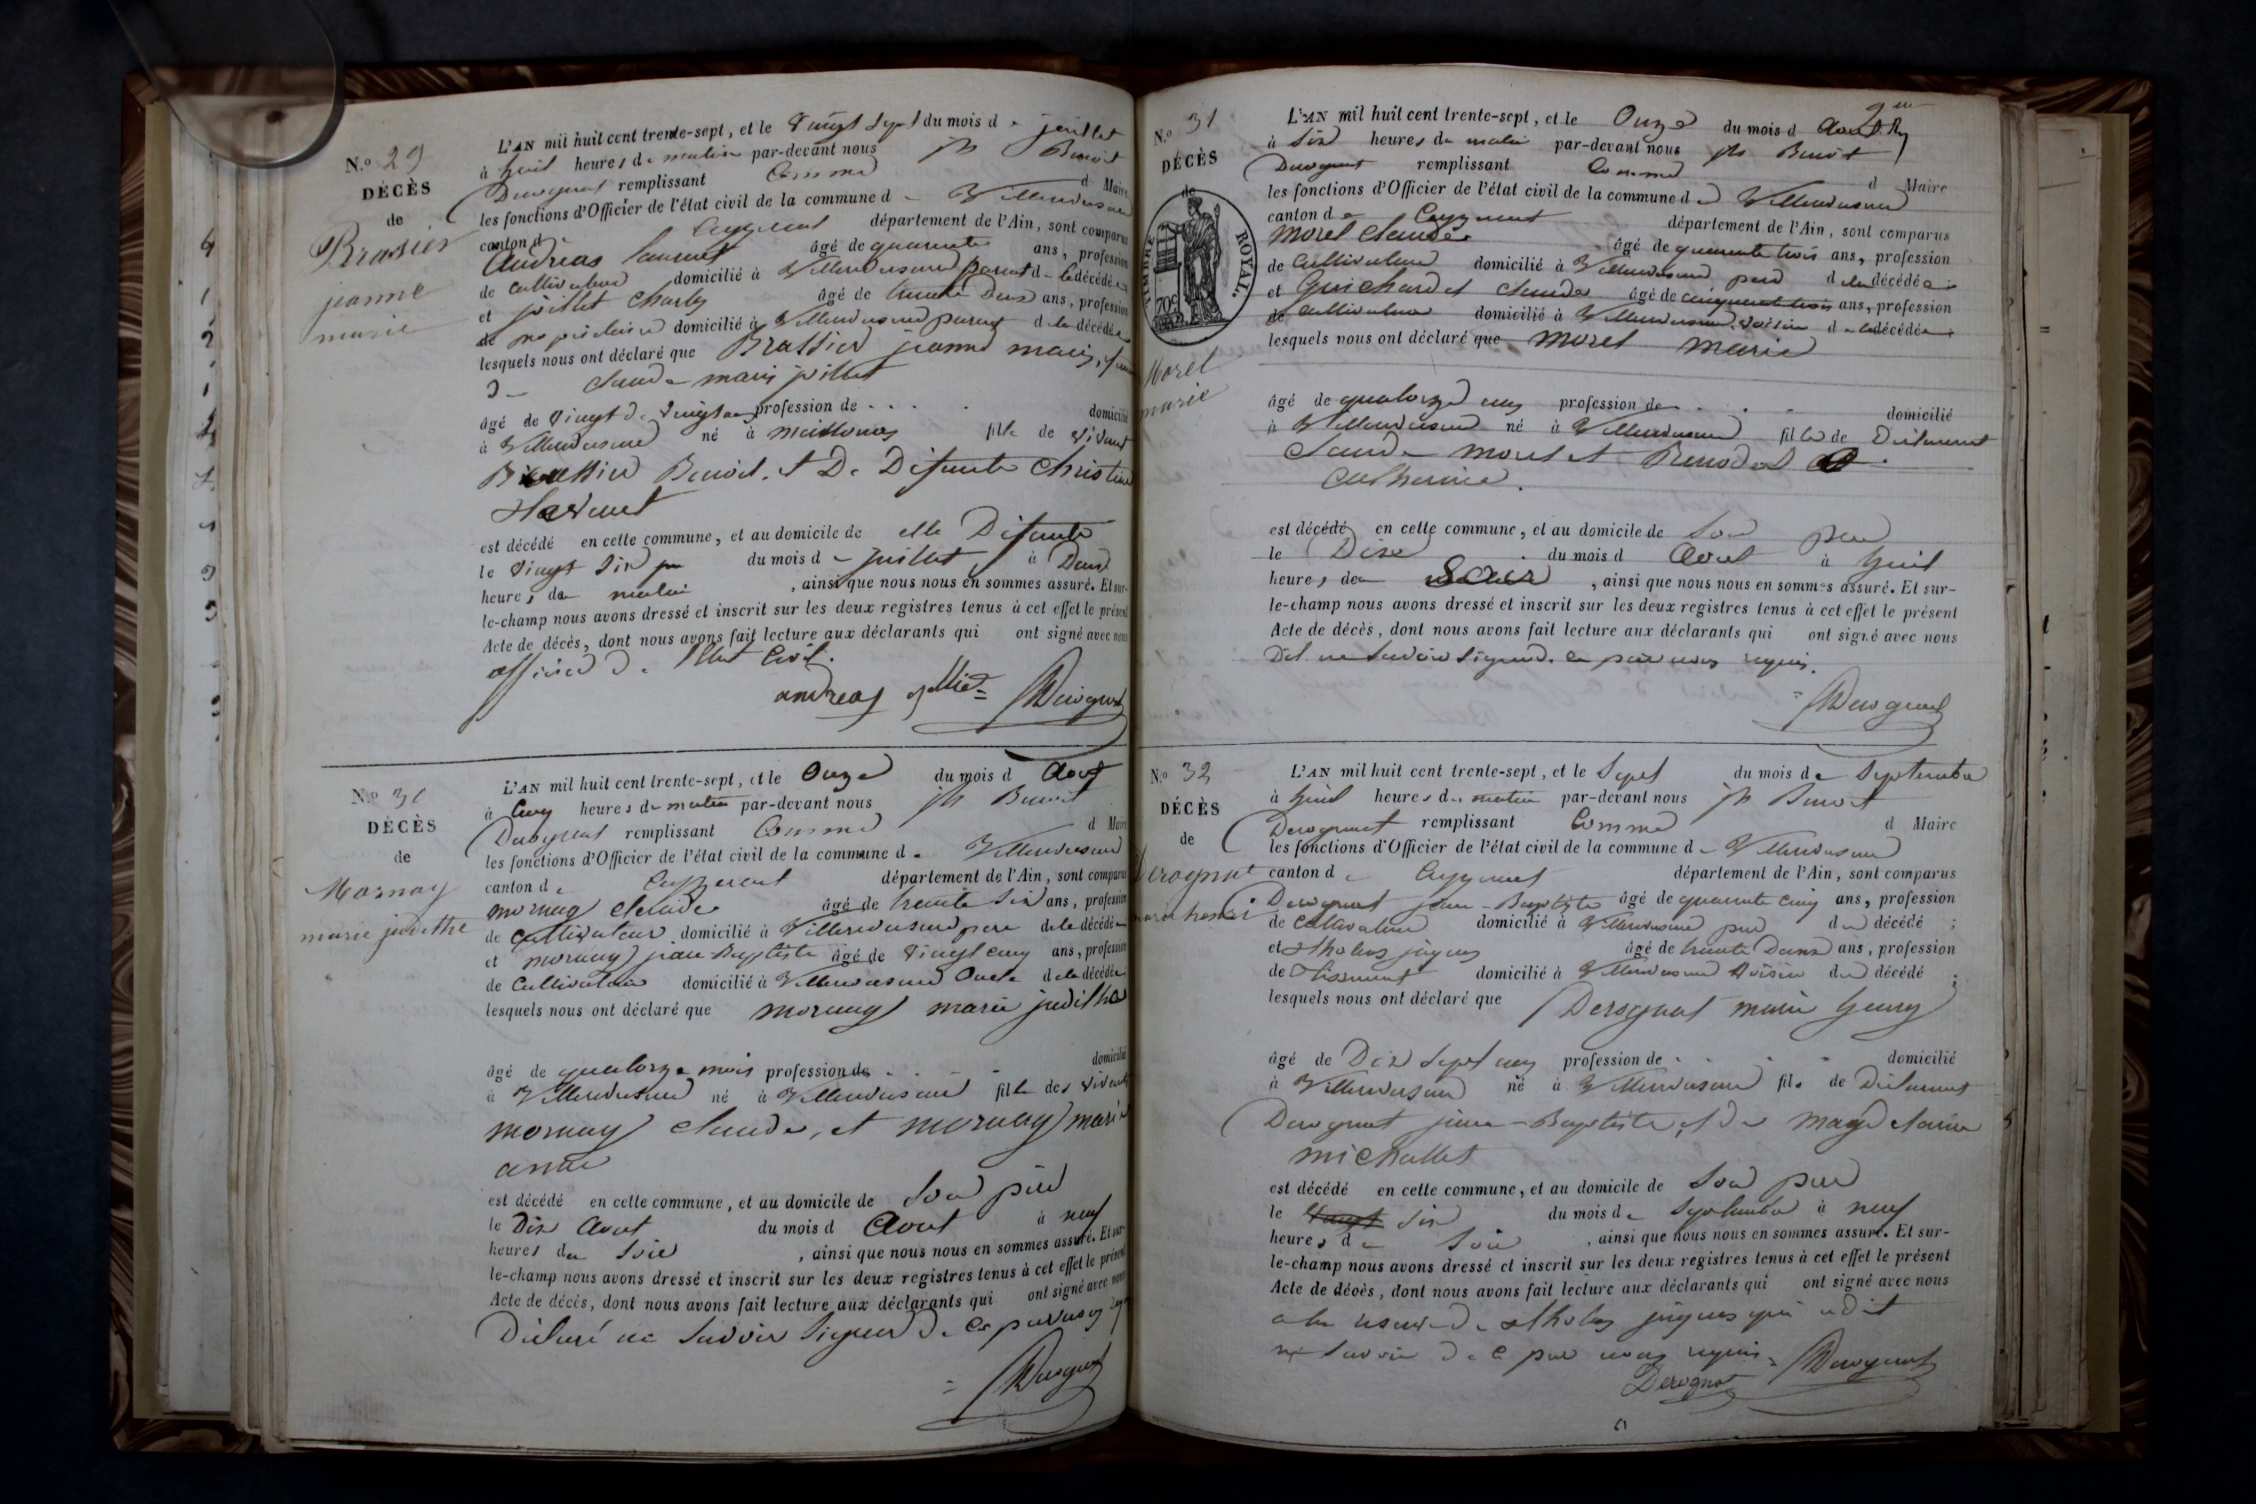 N.o 29
DÉCÈS
de
Brasier
jeanne
marie
L'AN mil huit cent trente-sept, et le vingt sept du mois de juillet
à huit heures du matin par-devant nous jh Benoit
Derognat remplissant comme d Maire
les fonctions d'Officier de l'état civil de la commune de Villereversure
canton d Ceyzeriat département de l'Ain, sont comparus
Andréas laurent âgé de quarante ans, profession
de cultivateur domicilié à Villereversure parent de la décédée
et joillet Charles âgé de trente Deux ans, profession
de propriétaire domicilié à Villereversure parent de la décédée
lesquels nous ont déclaré que Brassier jeanne marie,
d Claude marie joillet
âgé de vingt profession de . . . domicilié
à Villereversure né à meillonas fille de vivant
Brassier Benoit. et De Défunte Christine
est décédé en cette commune, et au domicile de elle Défunte
le vingt six du mois de juillet à Deux
heures du matin, ainsi que nous nous en sommes assuré. Et sur-
le-champ nous avons dressé et inscrit sur les deux registres tenus à cet effet le présent
Acte de décès, dont nous avons fait lecture aux déclarants qui ont signé avec nous
officier de l'Etat Civil.
andreas Derognat
N.o 30
DÉCÈS
de
Mornay
marie judithe
L'AN mil huit cent trente-sept, et le Onze du mois d Aout
à Cinq heures du matin par-devant nous jh Benoit
Derognat remplissant Comme d Maire
les fonctions d'Officier de l'état civil de la commune de Villereversure
canton de Ceyzeriat département de l'Ain, sont comparus
mornay claude âgé de trente six ans, profession
de cultivateur domicilié à Villereversure pere de la décédée
et mornay jean Baptiste âgé de vingt cinq ans, profession
de Cultivateur domicilié à Villereversure Oncle de la décédée
lesquels nous ont déclaré que mornay marie judithe
âgé de quatorze mois profession de . domicilié
à Villereversure né à Villereversure fille des vivants
mornay claude, et mornay marie
anne
est décédé en cette commune, et au domicile de son père
le Dix Aout du mois d Aout à neuf
heures du soir, ainsi que nous nous en sommes assuré. Et sur-
le-champ nous avons dressé et inscrit sur les deux registres tenus à cet effet le présent
Acte de décès, dont nous avons fait lecture aux déclarants qui ont signé avec nous
Déclaré ne savoir signer de ce
Derognat
N.o 31
DÉCÈS
de
TIMBRE ROYAL.
70c
Morel
marie
L'AN mil huit cent trente-sept, et le Onze du mois d Aout
à six heures du matin par-devant nous jh Benoit
Derognat remplissant Comme d Maire
les fonctions d'Officier de l'état civil de la commune de Villereversure
canton de Ceyzeriat département de l'Ain, sont comparus
morel claude âgé de quarante trois ans, profession
de Cultivateur domicilié à Villereversure pere de la décédée
et Guichardet claude âgé de cinquante trois ans, profession
de cultivateur domicilié à Villereversure voisin de la décédée
lesquels nous ont déclaré que morel marie
âgé de quatorze ans profession de . . . domicilié
à Villereversure né à Villereversure fille de Déclarant
claude morel et
catherine.
est décédé en cette commune, et au domicile de son pere
le Dix du mois d Aout à huit
heures du Soir, ainsi que nous nous en sommes assuré. Et sur-
le-champ nous avons dressé et inscrit sur les deux registres tenus à cet effet le présent
Acte de décès, dont nous avons fait lecture aux déclarants qui ont signé avec nous
Dit ne savoir signer de ce par nous requis.
Derognat
N.o 32
DÉCÈS
de
Derognat
marie henri
L'AN mil huit cent trente-sept, et le Sept du mois de Septembre
à huit heures du matin par-devant nous jh Benoit
Derognat remplissant Comme d Maire
les fonctions d'Officier de l'état civil de la commune de Villereversure
canton de Ceyzeriat département de l'Ain, sont comparus
Derognat jean-Baptiste âgé de quarante cinq ans, profession
de cultivateur domicilié à Villereversure pere du décédé ;
et jaques âgé de trente Deux ans, profession
de Tisserant domicilié à Villereversure voisin du décédé ;
lesquels nous ont déclaré que Derognat marie henry
âgé de Dix sept ans profession de . . . domicilié
à Villereversure né à Villereversure fils de Déclarant
Derognat jean-Baptiste, et de
michallet
est décédé en cette commune, et au domicile de son pere
le six du mois de Septembre à neuf
heures du soir, ainsi que nous nous en sommes assuré. Et sur-
le-champ nous avons dressé et inscrit sur les deux registres tenus à cet effet le présent
Acte de décès, dont nous avons fait lecture aux déclarants qui ont signé avec nous
jaques qui a dit
ne savoir de ce par nous requis
Derognat Derognat